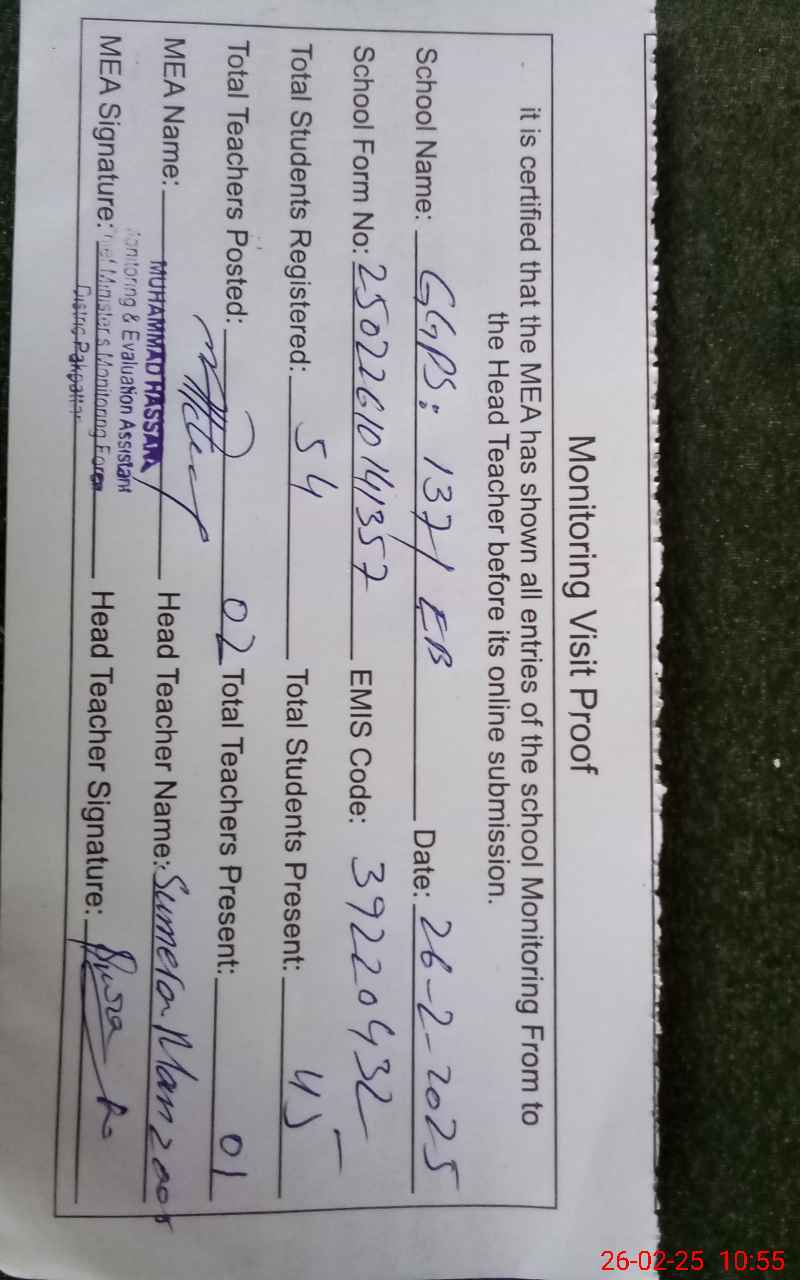 Monitoring Visit Proof
it is certified that the MEA has shown all entries of the school Monitoring From to
the Head Teacher before its online submission.
School Name: GGPS: 137/EB Date: 26-2-2025
School Form No: 25022610141357 EMIS Code: 39220432
Total Students Registered: 54 Total Students Present: 45
Total Teachers Posted: 02 Total Teachers Present: 01
MEA Name: MUHAMMAD HASSAN Head Teacher Name: Sumera Manzoor
Monitoring & Evaluation Assistant
MEA Signature: Chief Minister's Monitoring Force Head Teacher Signature:
District Pakpattan
26-02-25 10:55